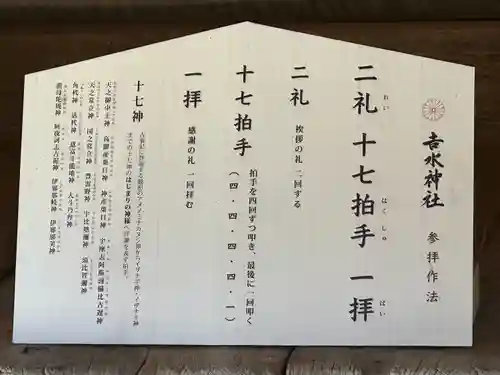 吉水神社 参拝作法
二礼 十七拍手 一拝
れい はくしゅ ぱい
二礼 挨拶の礼 二回する
十七拍手 拍手を四回ずつ叩き、最後に一回叩く
(四・四・四・四・一)
一拝 感謝の礼 一回拝む
十七神
までの十七神のはじまりの神様へ拝礼を表す拍手。
天之御中主神 高御産巣日神 神産巣日神 宇摩志阿斯訶備比古遅神
天之常立神 国之常立神 豊雲野神 宇比地邇神 須比智邇神
角杙神 活杙神 意富斗能地神 大斗乃弁神
於母陀流神 阿夜訶志古泥神 伊邪那岐神 伊邪那美神